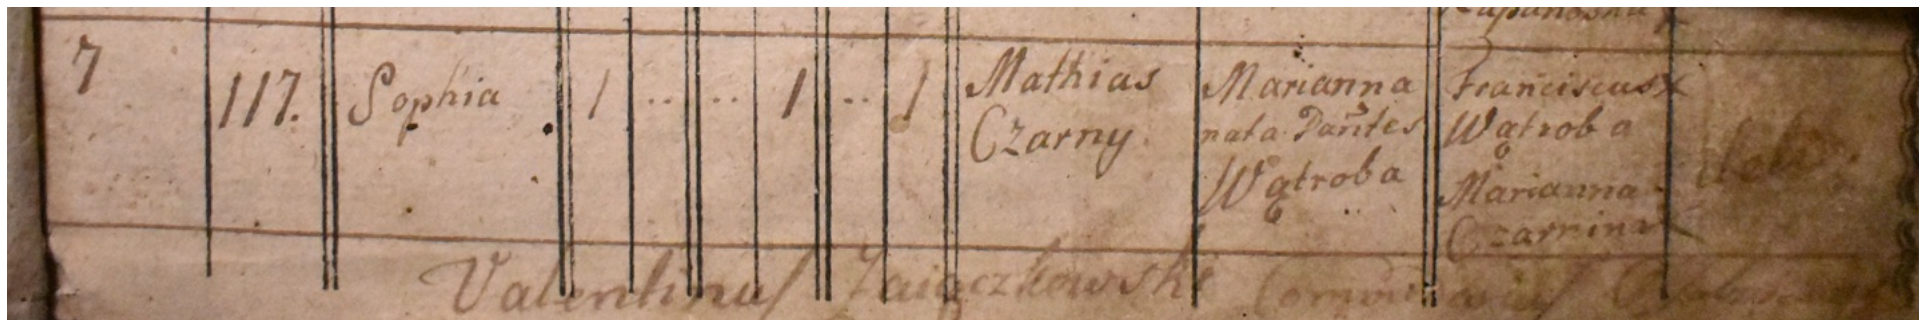 7 117. Sophia 1 .. .. 1 .. 1
Mathias
Czarny
Marianna
nata
Wątroba
Franciscus x
Wątroba
Marianna
Valentinus Zaiączkowski